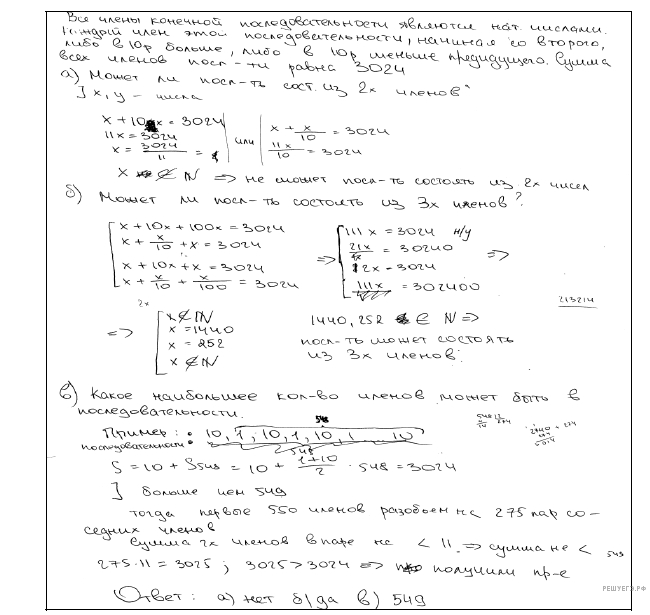 Все члены конечной последовательности являются нат. числами.
Каждый член этой последовательности, начиная со второго,
либо в 10р больше, либо в 10р меньше предыдущего. Сумма
всех членов посл-ти равна 3024
а) Может ли посл-ть сост. из 2х членов
] x, y - числа
x + 10x = 3024
11x = 3024
x = 3024/11 =
или
x + x/10 = 3024
11x/10 = 3024
x ∉ N => не может посл-ть состоять из 2х чисел
б) Может ли посл-ть состоять из 3х членов?
x + 10x + 100x = 3024
x + x/10 + x = 3024
x + 10x + x = 3024
x + x/10 + x/100 = 3024
=>
111x = 3024 н/у
21x = 30240
12x = 3024
111x = 302400
=>
213214
=>
x ∉ N
x = 1440
x = 252
x ∉ N
1440, 252 ∈ N =>
посл-ть может состоять
из 3х членов.
в) Какое наибольшее кол-во членов может быть в
последовательности.
548
Пример: • 10, 1, 10, 1, 10, 1 ... 10
последовательности •
548
S = 10 + S548 = 10 + (1+10)/2 · 548 = 3024
] больше чем 549
тогда первые 550 членов разобьем на 275 пар со-
седних членов
Сумма 2х членов в паре не < 11. => сумма не <
549
275·11 = 3025; 3025 > 3024 => получили пр-е
Ответ: а) нет б) да в) 549
РЕШУЕГЭ.РФ